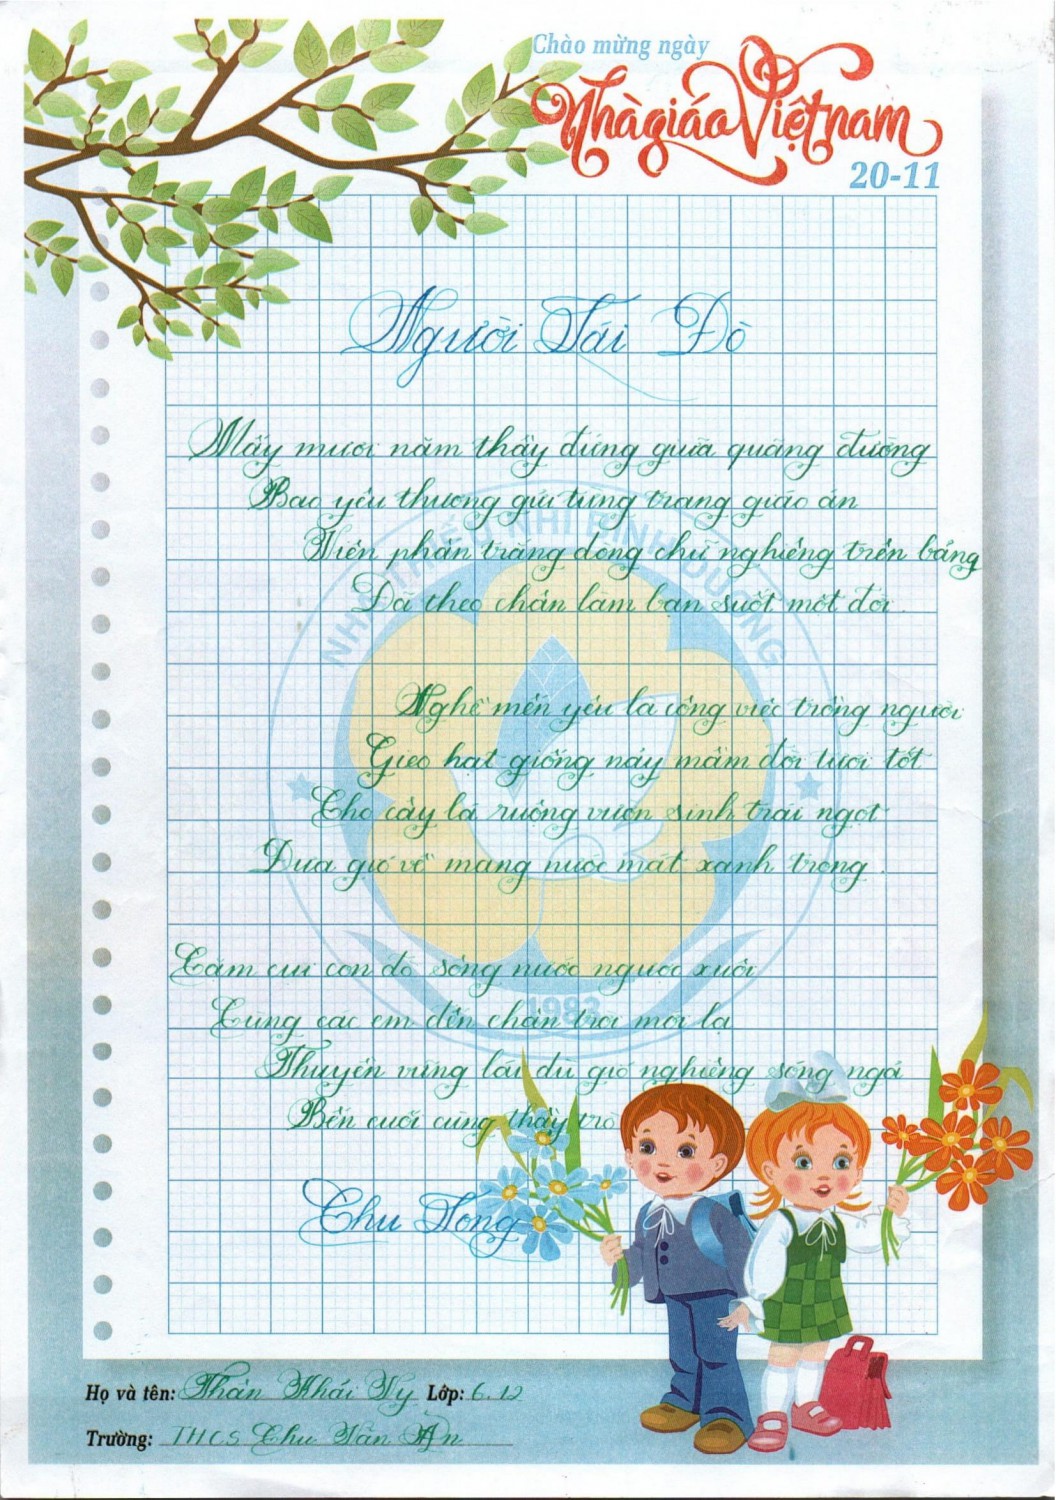 Chào mừng ngày
Nhà giáo Việt nam
20-11
Người Lái Đò
Mấy mươi năm thầy đứng giữa quãng đường
Bao yêu thương gửi từng trang giáo án
Viên phấn trắng dòng chữ nghiêng trên bảng
Đã theo chân làm bạn suốt một đời.
Nghề mến yêu là công việc trồng người
Gieo hạt giống nảy mầm đời tươi tốt
Cho cây lá ruộng vườn sinh trái ngọt
Đưa gió về mang nước mát xanh trong.
Cắm cúi con đò sông nước ngược xuôi
Cùng các em đến chân trời mới lạ
Thuyền vững lái dù gió nghiêng sóng ngả
Bến cuối cùng thầy trò
Chu Long
NHÀ THIẾU NHI BÌNH DƯƠNG
1983
Họ và tên: Thân Khái Vy Lớp: 6.12
Trường: THCS Chu Văn An